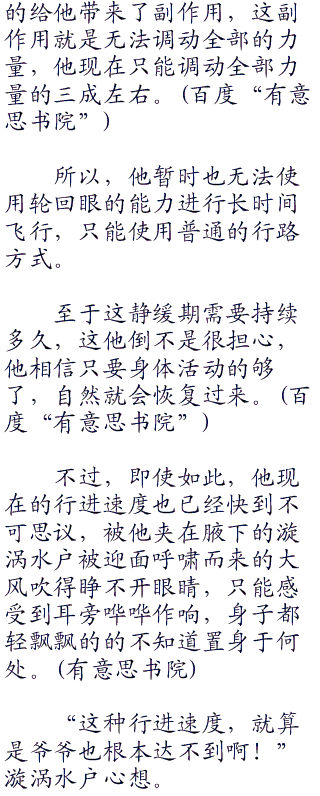 的给他带来了副作用，这副
作用就是无法调动全部的力
量，他现在只能调动全部力
量的三成左右。(百度“有意
思书院”)
所以，他暂时也无法使
用轮回眼的能力进行长时间
飞行，只能使用普通的行路
方式。
至于这静缓期需要持续
多久，这他倒不是很担心，
他相信只要身体活动的够
了，自然就会恢复过来。(百
度“有意思书院”)
不过，即使如此，他现
在的行进速度也已经快到不
可思议，被他夹在腋下的漩
涡水户被迎面呼啸而来的大
风吹得睁不开眼睛，只能感
受到耳旁哗哗作响，身子都
轻飘飘的的不知道置身于何
处。(有意思书院)
“这种行进速度，就算
是爷爷也根本达不到啊！”
漩涡水户心想。